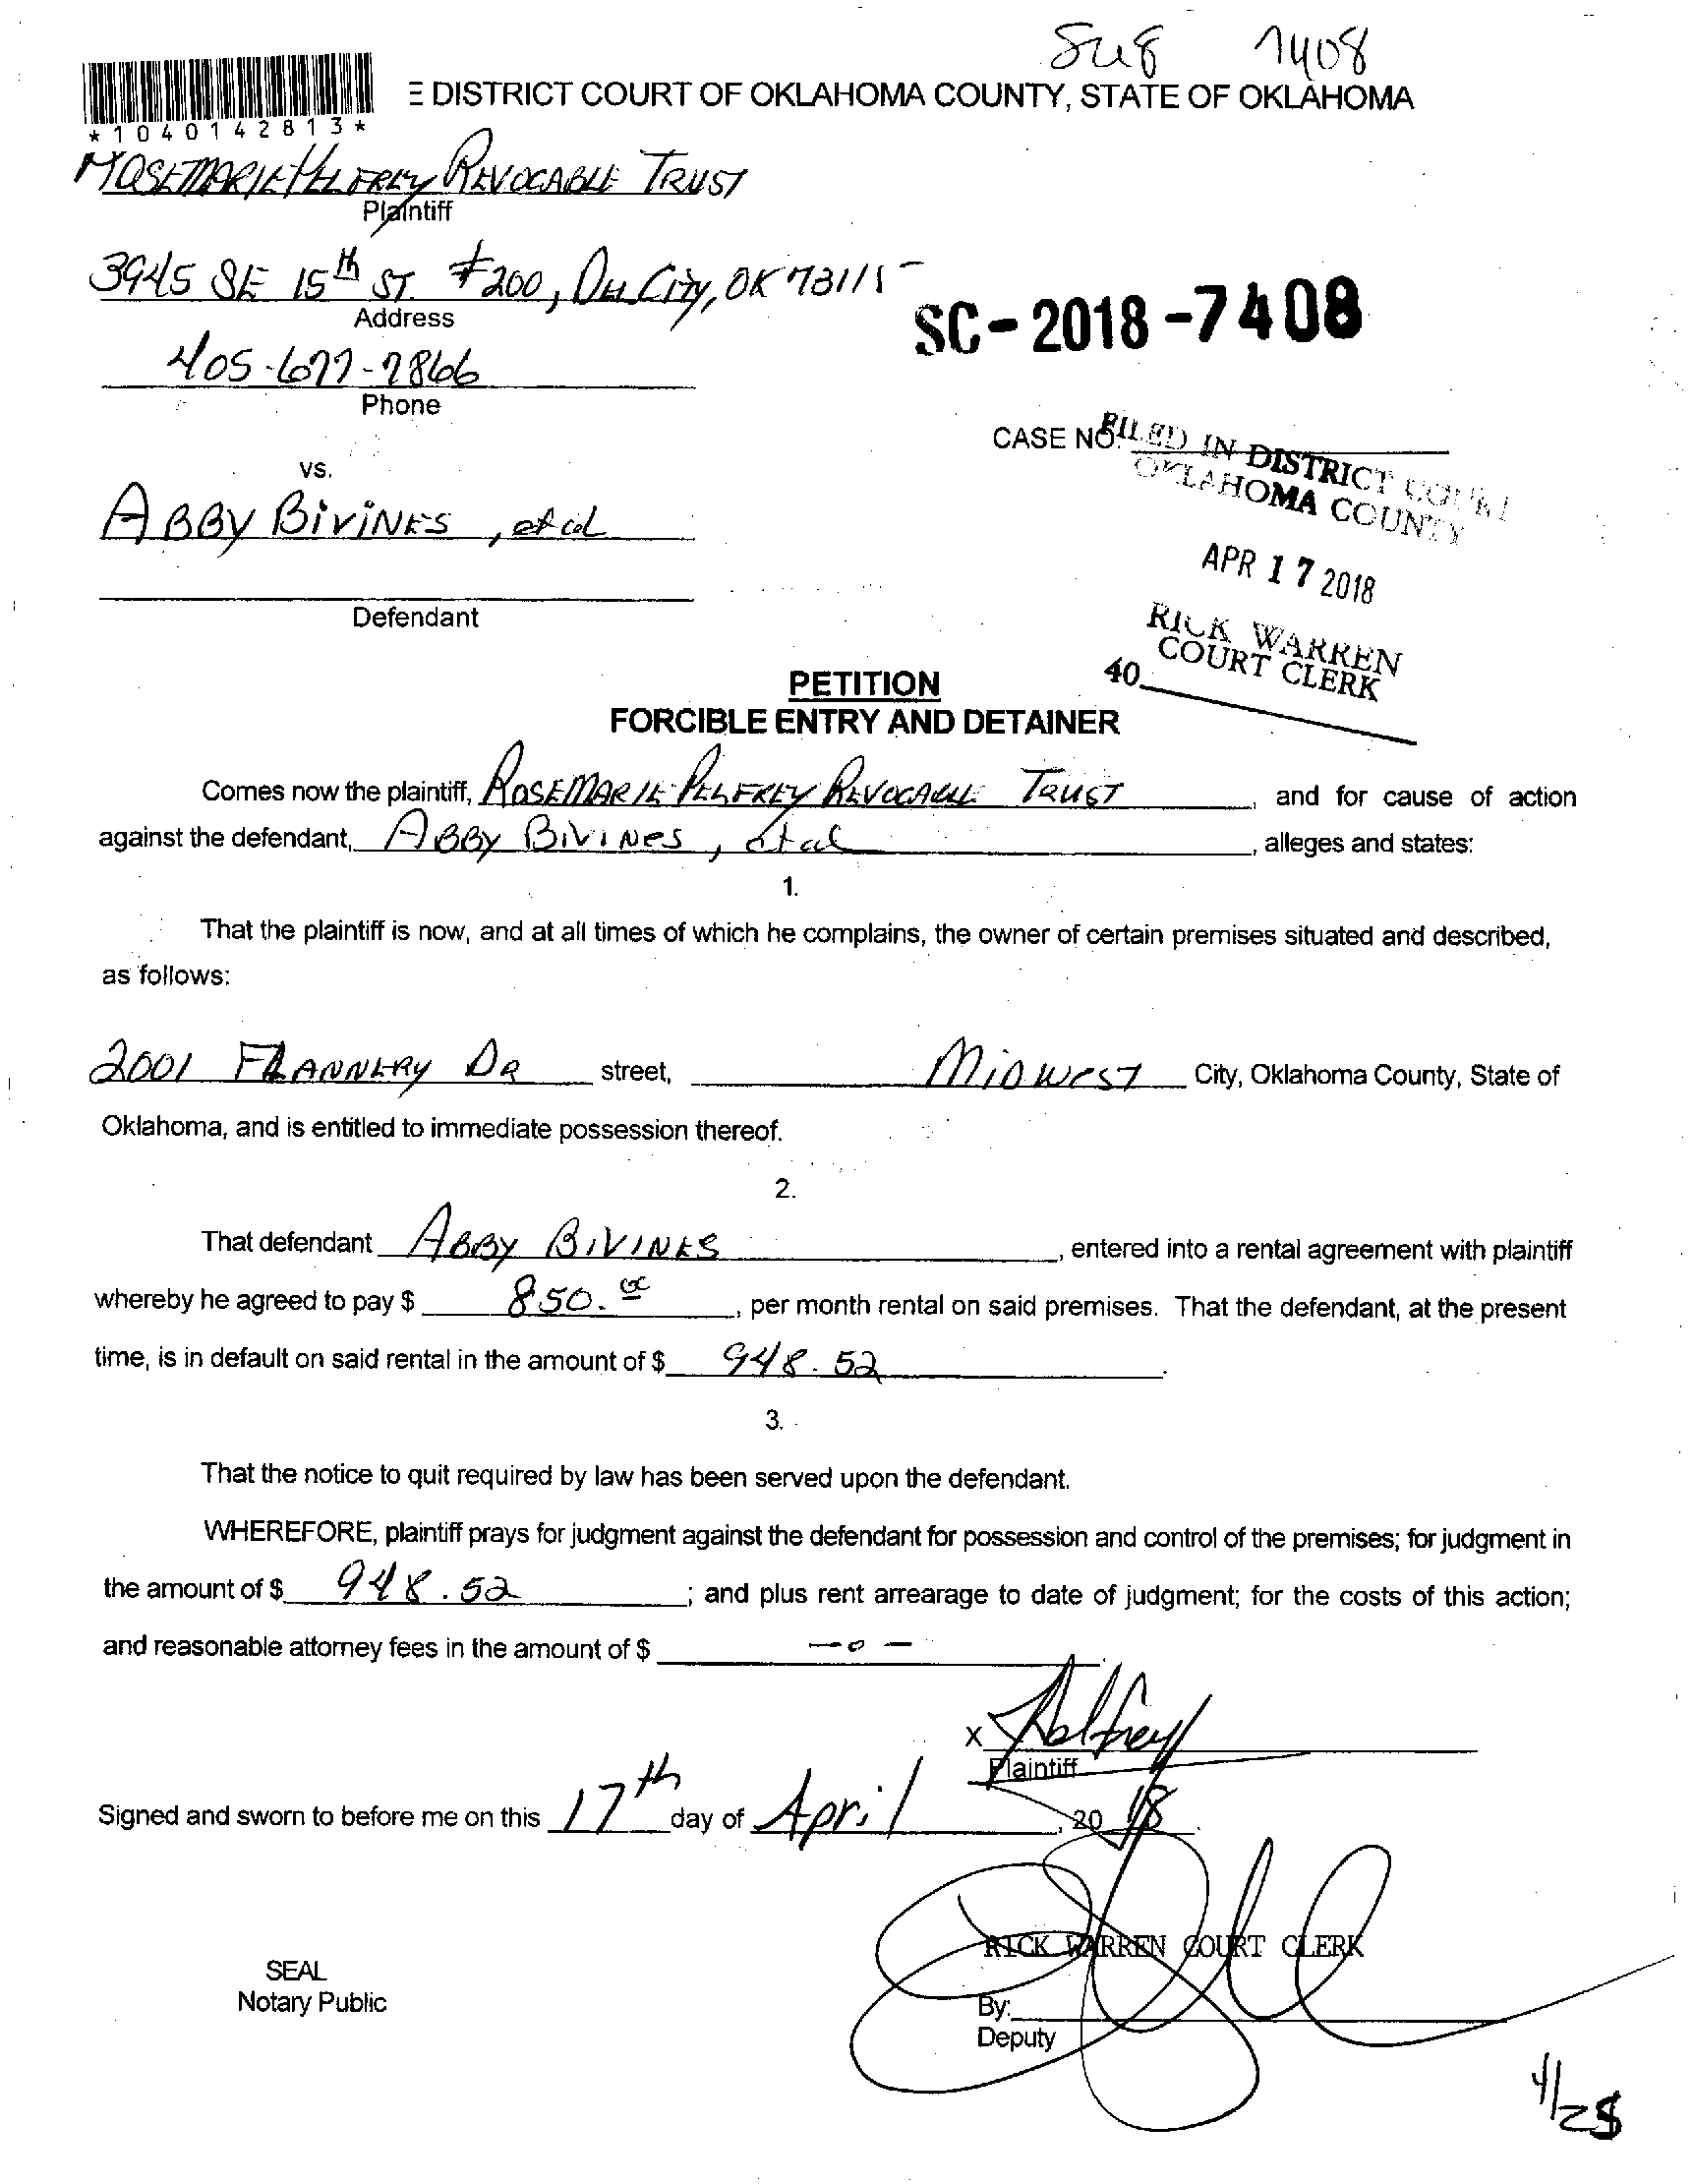 7408
*1040142813*
DISTRICT COURT OF OKLAHOMA COUNTY, STATE OF OKLAHOMA
REVOCABLE TRUST
Plaintiff
3945 SE 15th ST. #200, City, OK 73115
Address
SC-2018-7408
405-677-7866
Phone
CASE NO. FILED IN DISTRICT COURT
OKLAHOMA COUNTY
vs.
ABBY BiViNES, et al
APR 17 2018
Defendant
RICK WARREN
COURT CLERK
40
PETITION
FORCIBLE ENTRY AND DETAINER
Comes now the plaintiff, ROSEMARIE PELFREY REVOCABLE TRUST, and for cause of action
against the defendant, ABBY BiViNES, et al, alleges and states:
1.
That the plaintiff is now, and at all times of which he complains, the owner of certain premises situated and described,
as follows:
2001 FLANNERY DR street, MIDWEST City, Oklahoma County, State of
Oklahoma, and is entitled to immediate possession thereof.
2.
That defendant ABBY BIVINES, entered into a rental agreement with plaintiff
whereby he agreed to pay $ 850.00, per month rental on said premises. That the defendant, at the present
time, is in default on said rental in the amount of $ 948.52.
3.
That the notice to quit required by law has been served upon the defendant.
WHEREFORE, plaintiff prays for judgment against the defendant for possession and control of the premises; for judgment in
the amount of $ 948.52; and plus rent arrearage to date of judgment; for the costs of this action;
and reasonable attorney fees in the amount of $ -0-.
x Pelfrey
Plaintiff
Signed and sworn to before me on this 17th day of April, 2018.
RICK WARREN COURT CLERK
SEAL
Notary Public
By:
Deputy